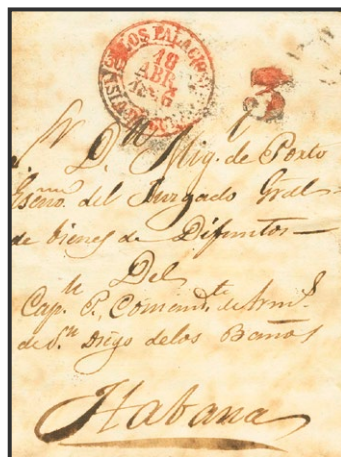 LOS PALACIOS
16
ABR
D. Mig. de Porto
Esno. del Juzgado Gral
de bienes de Difuntos
Del
Cap.n P. Comand.te de Arm.s
de S.n Diego de los Baños
Habana